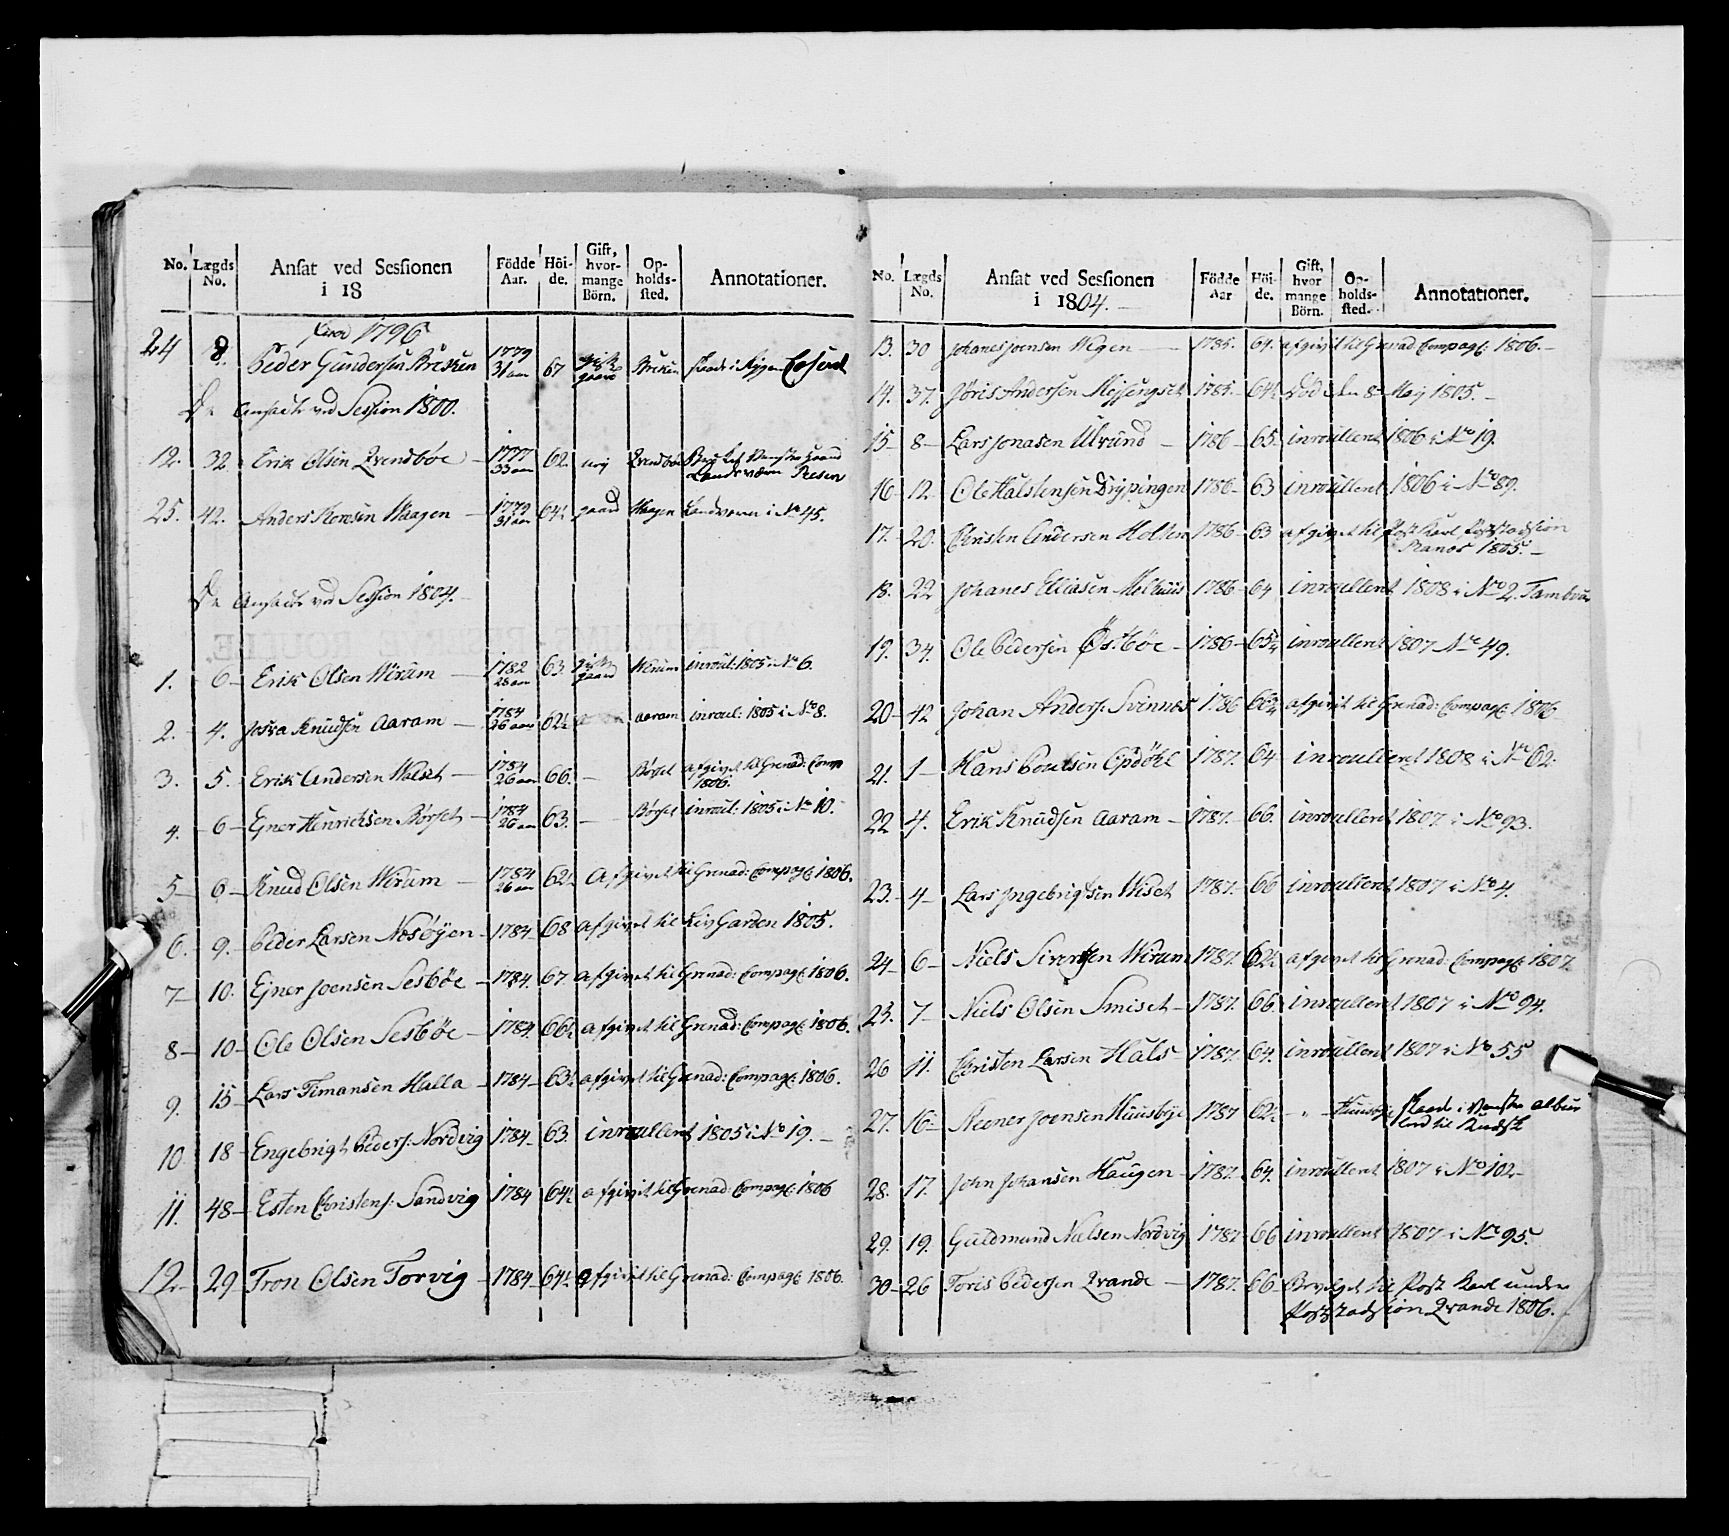 No. Lægds No. Ansat ved Sessionen i 18 Födde Aar. Höi-de. Gift, hvor-mange Börn. Op-holds-sted. Annotationer.
1796
24 8. Peder Gundersen 1779 31 aar 67
De Ansatte ved Session 1800.
12. 32 Erik Olsen Qvendbøe 1777 33 aar 62. Qvendbøe
Landeværn
25. 42. Anders Waagen 1779 31 aar 64½ Waagen Landværn i No 45.
De Ansatte ved Session 1804.
1. 6 Erik Olsen Wirum 1782 28 aar 63. Wirum inroul: 1805 i No 6.
2. 4. Josva Knudsen Aaram 1784 26 aar 62½ Aaram inroul: 1805 i No 8.
3. 5. Erik Andersen Walset 1784 26 aar 66. Børset afgivet til Grenad: Comp
1806.
4. 6 Ejner Henrichsen Børset 1784 26 aar 63. Børset inroul: 1805 i No 10.
5 6 Knud Olsen Wirum 1784 26 aar 62½ Afgivet til Grenad: Compagt 1806.
6. 9. Peder Larsen Nesøyen 1784 68 afgivet til Liv Garden 1805.
7 10. Ejner Joensen Sesbøe 1784. 67 afgivet til Grenad: Compagt 1806.
8 10 Ole Olsen Sesbøe 1784 66½ afgivet til Grenad: Compagt 1806.
9. 15 Lars Timansen Halla 1784 63½ afgivet til Grenad: Compagt 1806.
10 18 Engebrigt Peders: Nordvig 1784 63. inroullent 1805 i No 19.
11. 48 Esten Christens: Sandvig 1784 64½ afgivet til Grenad: Compagt 1806
12 29 Tron Olsen Torvig 1784 64½ afgivet til Grenad: Compagt 1806.
No. Lægds No. Ansat ved Sessionen i 1804. Födde Aar Höi-de. Gift, hvor mange Börn. Op-holds-sted. Annotationer.
13. 30 Johanes Joensen Wegen 1785. 64. afgivet til Grenad Compagt 1806.
14. 37. Jöris Andersen 1785. 64½ Död den 8 May 1805.
15 8 Lars Jonasen Ulvund 1786 65. inroullent 1806 i No 19.
16 12 Ole Halstensen Drypingen 1786 63 inroullent 1806 i No 89.
17. 20. Christen Andersen Holten 1786 63 afgivet til Post Karl
1805.
18. 22 Johanes Elliasen Melhuus 1786 64 inroullent 1808 i No 2. Tambour
19. 34. Ole Pedersen Østbøe 1786 65¼ inroullent 1807 No 49.
20 42 Johan Anders: Svinnes 1786 66¾ afgivet til Grenad: Compagt 1806
21. 1 Hans Poulsen Opdöhl 1787. 64 inroullent 1808 i No 62.
22 4. Erik Knudsen Aaram 1787. 66. inroullent 1807 i No 93.
23. 4 Lars Ingebrigtsen Wiset 1787. 66 inroullent 1807 i No 4.
24 6 Niels Sivertsen Wirum 1787. 62½ afgivet til Grenad: Compagt 1807.
25. 7 Niels Olsen Smiset 1787. 66. inroullent 1807 i No 94.
26 11. Christen Larsen Hals 1787. 64. inroullent 1807 i No 55
27. 16 Joensen Huusbye 1787 62½ Huusbye
28. 17. John Johansen Haugen 1787. 64. inroullent 1807 i No 102
29. 19. Guldmund Nielsen Nordvig 1787 66 inroullent 1807 i No 95.
30 26 Toris Pedersen Qvande 1787. 66 til Post Karl under
Qvande 1806.